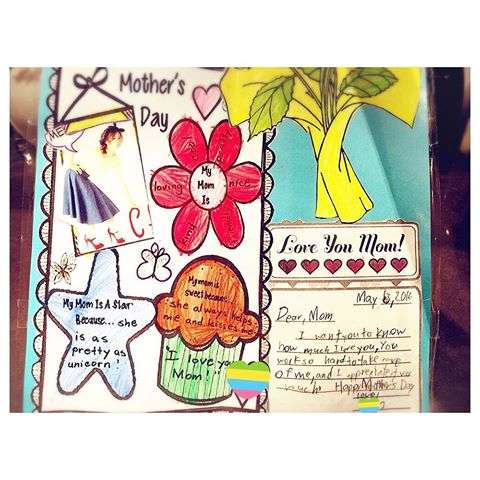 Mother's
Day
My
Mom
Is
loving
nice
kind
My Mom Is A Star
Because... she
is as
pretty as
unicorn!
My mom is
sweet because...
she always helps
me and kisses me
I love you
Mom!
Love You Mom!
May
Dear, Mom
I want you to know
how much I love you, You
work so hard to take
of me, and I
Happy Mother's Day
Love,